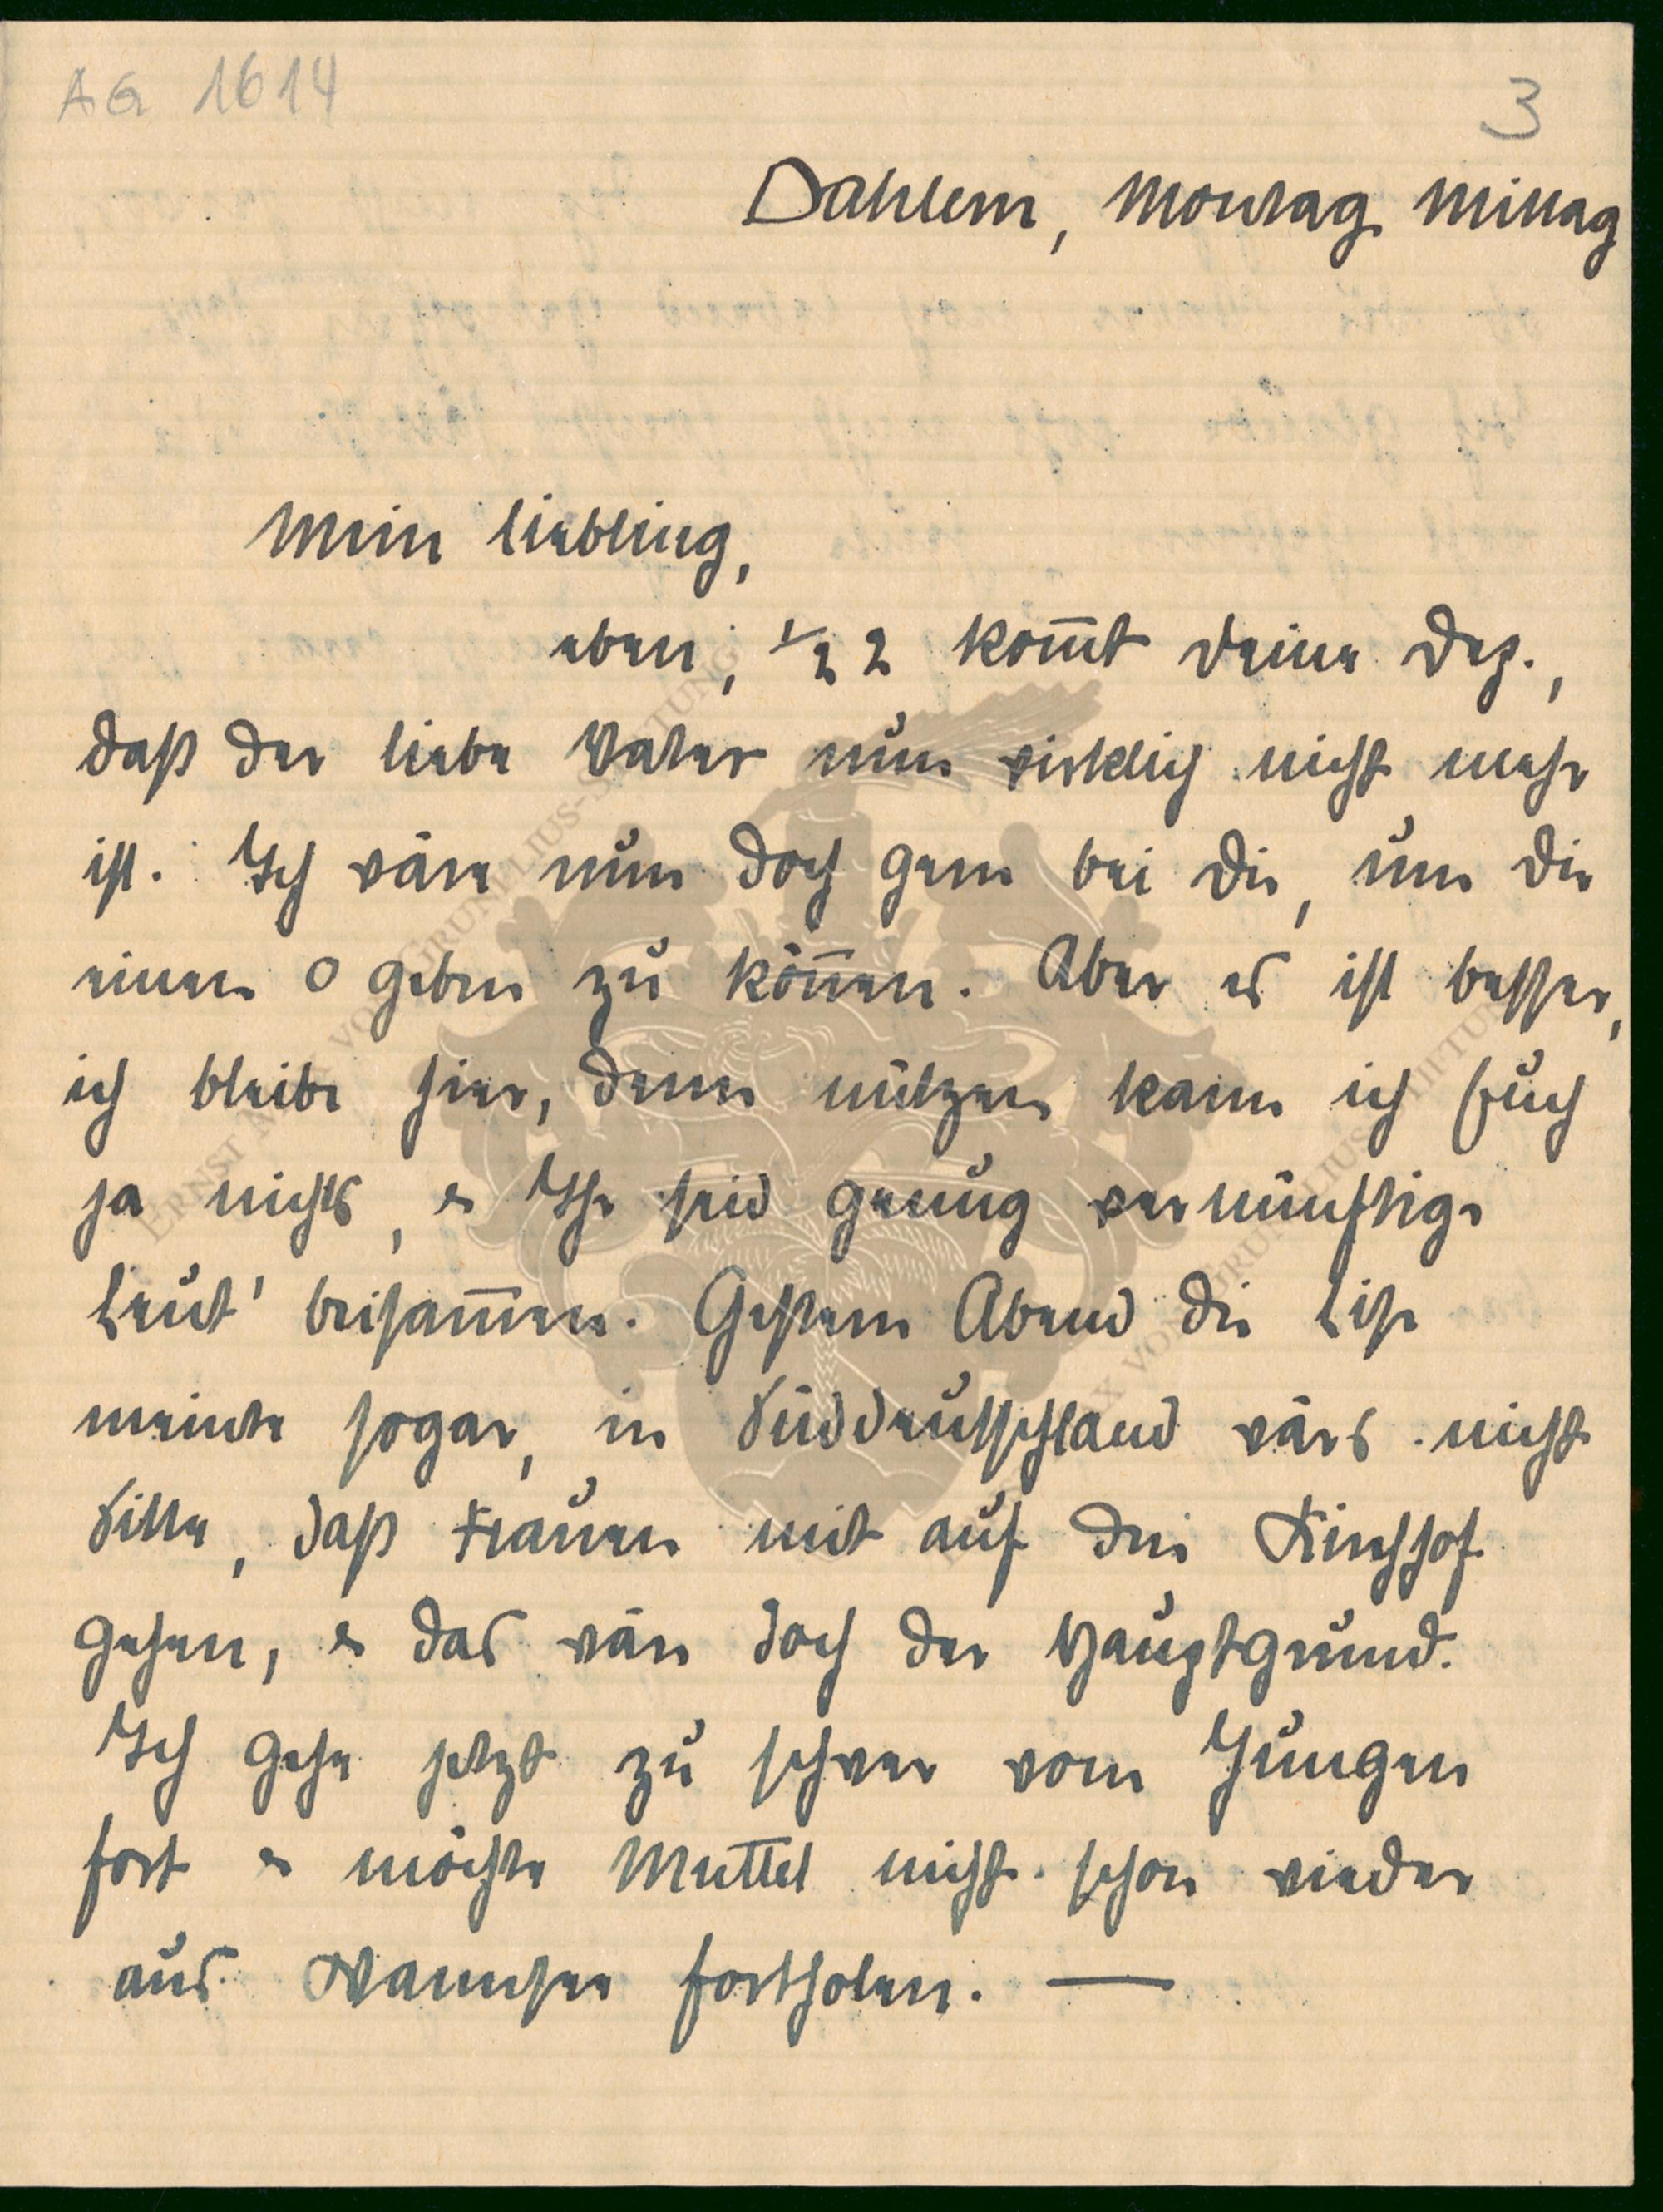 AG 1614
3
Dahlem, Montag Mittag
Mein Liebling,
eben, ½ 2 kom̅t Deine Dep.,
daß der liebe Vater nun wirklich nicht mehr
ist. Ich wäre nun doch gern bei Dir, um Dir
einen o geben zu kön̅en. Aber es ist besser,
ich bleibe hier, denn nützen kann ich Euch
ja nichts, & Ihr seid genug vernünftige
Leut' beisam̅en. Gestern Abend die Lise
meinte sogar, in Süddeutschland wärs nicht
Sitte, daß Frauen mit auf den Kirchhof
gehen, & das wär doch der Hauptgrund.
Ich gehe jetzt zu schwer vom Jungen
fort & möchte Muttel nicht schon wieder
aus Wannsee fortholen. —
ERNST MAX VON GRUNELIUS-STIFTUNG
ERNST MAX VON GRUNELIUS-STIFTUNG